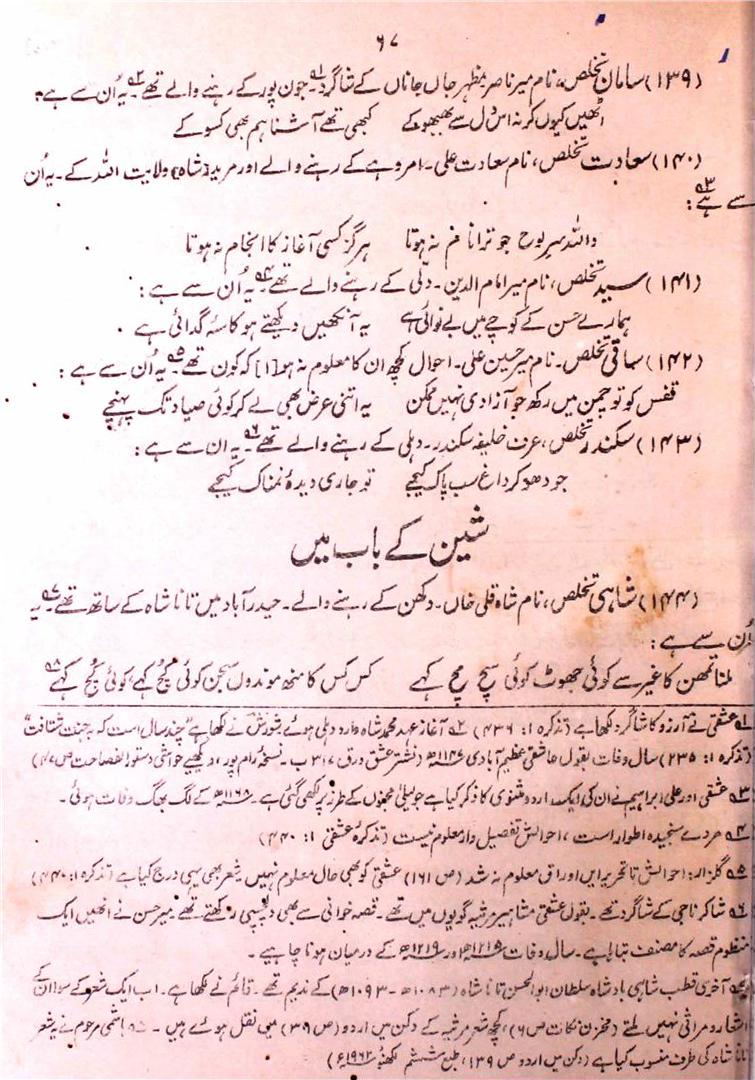 ۶۷
(۱۳۹) سامان تخلص، نام میر ناصر۔ مظہر جان جاناں کے شاگرد۔ جون پور کے رہنے والے تھے۔ یہ اُن سے ہے:
اٹھیں کیوں کر نہ اس دل سے بھبھوکے کبھی تھے آشنا ہم بھی کسو کے
(۱۴۰) سعادت تخلص، نام سعادت علی۔ امروہے کے رہنے والے اور مرید (شاہ) ولایت اللہ کے۔ یہ اُن
سے ہے:
واللہ سر لوح جو ترا نام نہ ہوتا ہرگز کسی آغاز کا انجام نہ ہوتا
(۱۴۱) سید تخلص، نام میر امام الدین۔ دلی کے رہنے والے تھے۔ یہ اُن سے ہے:
ہمارے حسن کے کوچے میں بے نوائی ہے یہ آنکھیں دیکھتے ہو کاسۂ گدائی ہے
(۱۴۲) ساقی تخلص۔ نام میر حسین علی۔ احوال کچھ ان کا معلوم نہ ہو [ا] کہ کون تھے۔ یہ اُن سے ہے:
قفس کو تو چمن میں رکھ جو آزادی نہیں ممکن یہ اتنی عرض بھی لے کر کوئی صیاد تک پہنچے
(۱۴۳) سکندر تخلص، عرف خلیفہ سکندر۔ دہلی کے رہنے والے تھے۔ یہ ان سے ہے:
جو دھو کر داغ سب پاک کیجے تو جاری دیدۂ نمناک کیجے
شین کے باب میں
(۱۴۴) شاہی تخلص، نام شاہ قلی خاں۔ دکھن کے رہنے والے۔ حیدرآباد میں تانا شاہ کے ساتھ تھے۔ یہ
اُن سے ہے:
ملنا تمھن کا غیر سے کوئی جھوٹ کوئی سچ مچ کہے کس کس کا منھ موندوں سجن کوئی کچھ کہے کوئی کچھ کہے
۱ عشقی نے آرزو کا شاگرد لکھا ہے (تذکرہ ۱: ۴۳۶) ۲ آغاز عہد محمد شاہ وارد دہلی ہوئے شورش نے لکھا ہے "چند سال است کہ بہ جنت شتافت"
(تذکرہ ۱: ۲۳۵) سال وفات بقول عاشقی عظیم آبادی ۱۱۴۶ھ (نشتر عشق ورق ۳۱۷ ب۔ نسخۂ رام پور، دیکھیے حواشی دستور الفصاحت ص ۴۷)
۳ عشقی اور علی ابراہیم نے ان کی ایک اردو مثنوی کا ذکر کیا ہے جو لیلیٰ مجنوں کے طرز پر لکھی گئی ہے۔ ۱۱۶۸ھ کے لگ بھگ وفات ہوئی۔
۴ مردے سنجیدہ اطوار است، احوالش تفصیل وار معلوم نیست (تذکرۂ عشقی ۱: ۴۴۰)
۵ گلزار: احوالش تا تحریر ایں اوراق معلوم نہ شد (ص ۱۶۱) عشقی کو بھی حال معلوم نہیں شعر بھی یہی درج کیا ہے (تذکرہ ۱: ۴۴۰)
۶ شاکر ناجی کے شاگرد تھے۔ بقول عشقی مشاہیر مرثیہ گویوں میں تھے۔ قصہ خوانی سے بھی دلچسپی رکھتے تھے۔ میر حسن نے انھیں ایک
منظوم قصہ کا مصنف بتایا ہے۔ سال وفات ۱۲۱۵ھ اور ۱۲۱۹ھ کے درمیان ہونا چاہیے۔
۷ آخری قطب شاہی بادشاہ سلطان ابوالحسن تانا شاہ (۱۰۸۳ھ - ۱۰۹۳ھ) کے ندیم تھے۔ قائم نے لکھا ہے۔ اب ایک شعر کے سوا ان کے
اشعار و مراثی نہیں ملتے (مخزن نکات ص ۶)، کچھ شعر مرثیہ کے دکن میں اردو (ص ۳۹) میں نقل ہوئے ہیں۔ ۸ ہاشمی مرحوم نے یہ شعر
تانا شاہ کی طرف منسوب کیا ہے (دکن میں اردو ص ۱۳۹، طبع ششم لکھنؤ ۱۹۶۲ء)